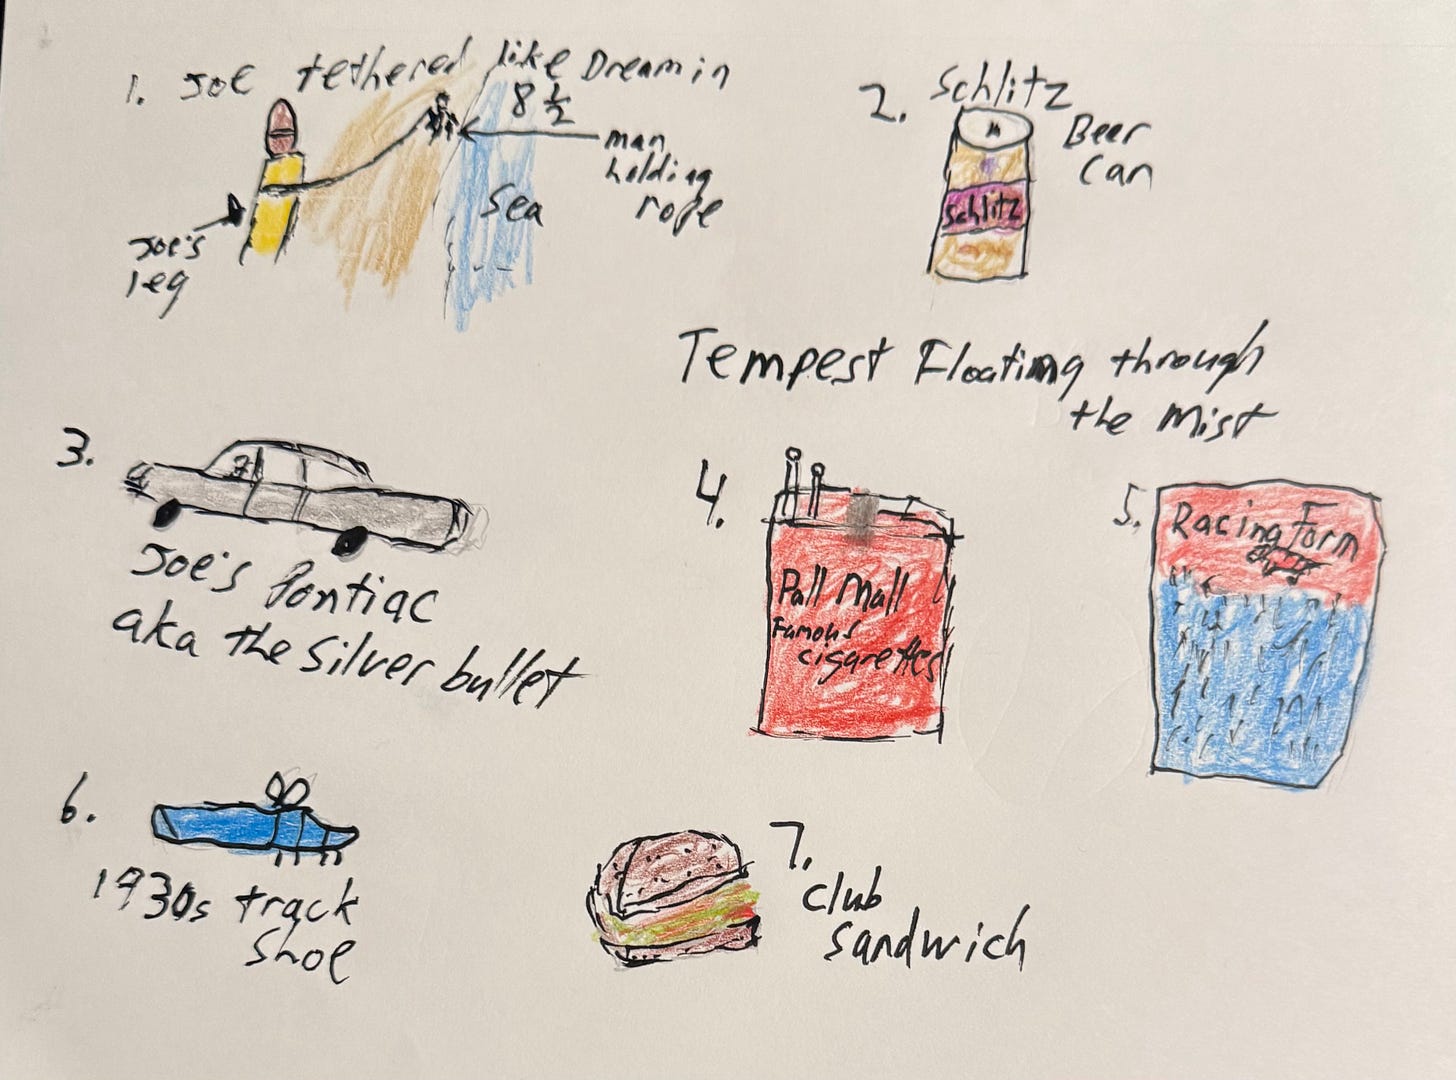 1. Joe tethered like Dream in
8 ½
man
holding
rope
Sea
Joe's
leg
2. Schlitz
Beer
Can
Schlitz
Tempest Floating through
the Mist
3.
Joe's Pontiac
aka the Silver bullet
4.
Pall Mall
Famous
cigarettes
5.
Racing Form
6.
1930s track
shoe
7.
Club
Sandwich